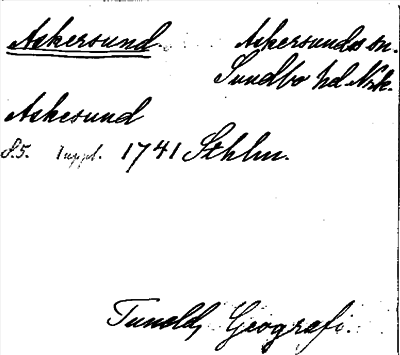 Askersund. Askersunds sn.
Sundbo hd Nrk.
Askesund
S. 5. Uppl. 1741 Sthlm.
Tuneld, Geografi.